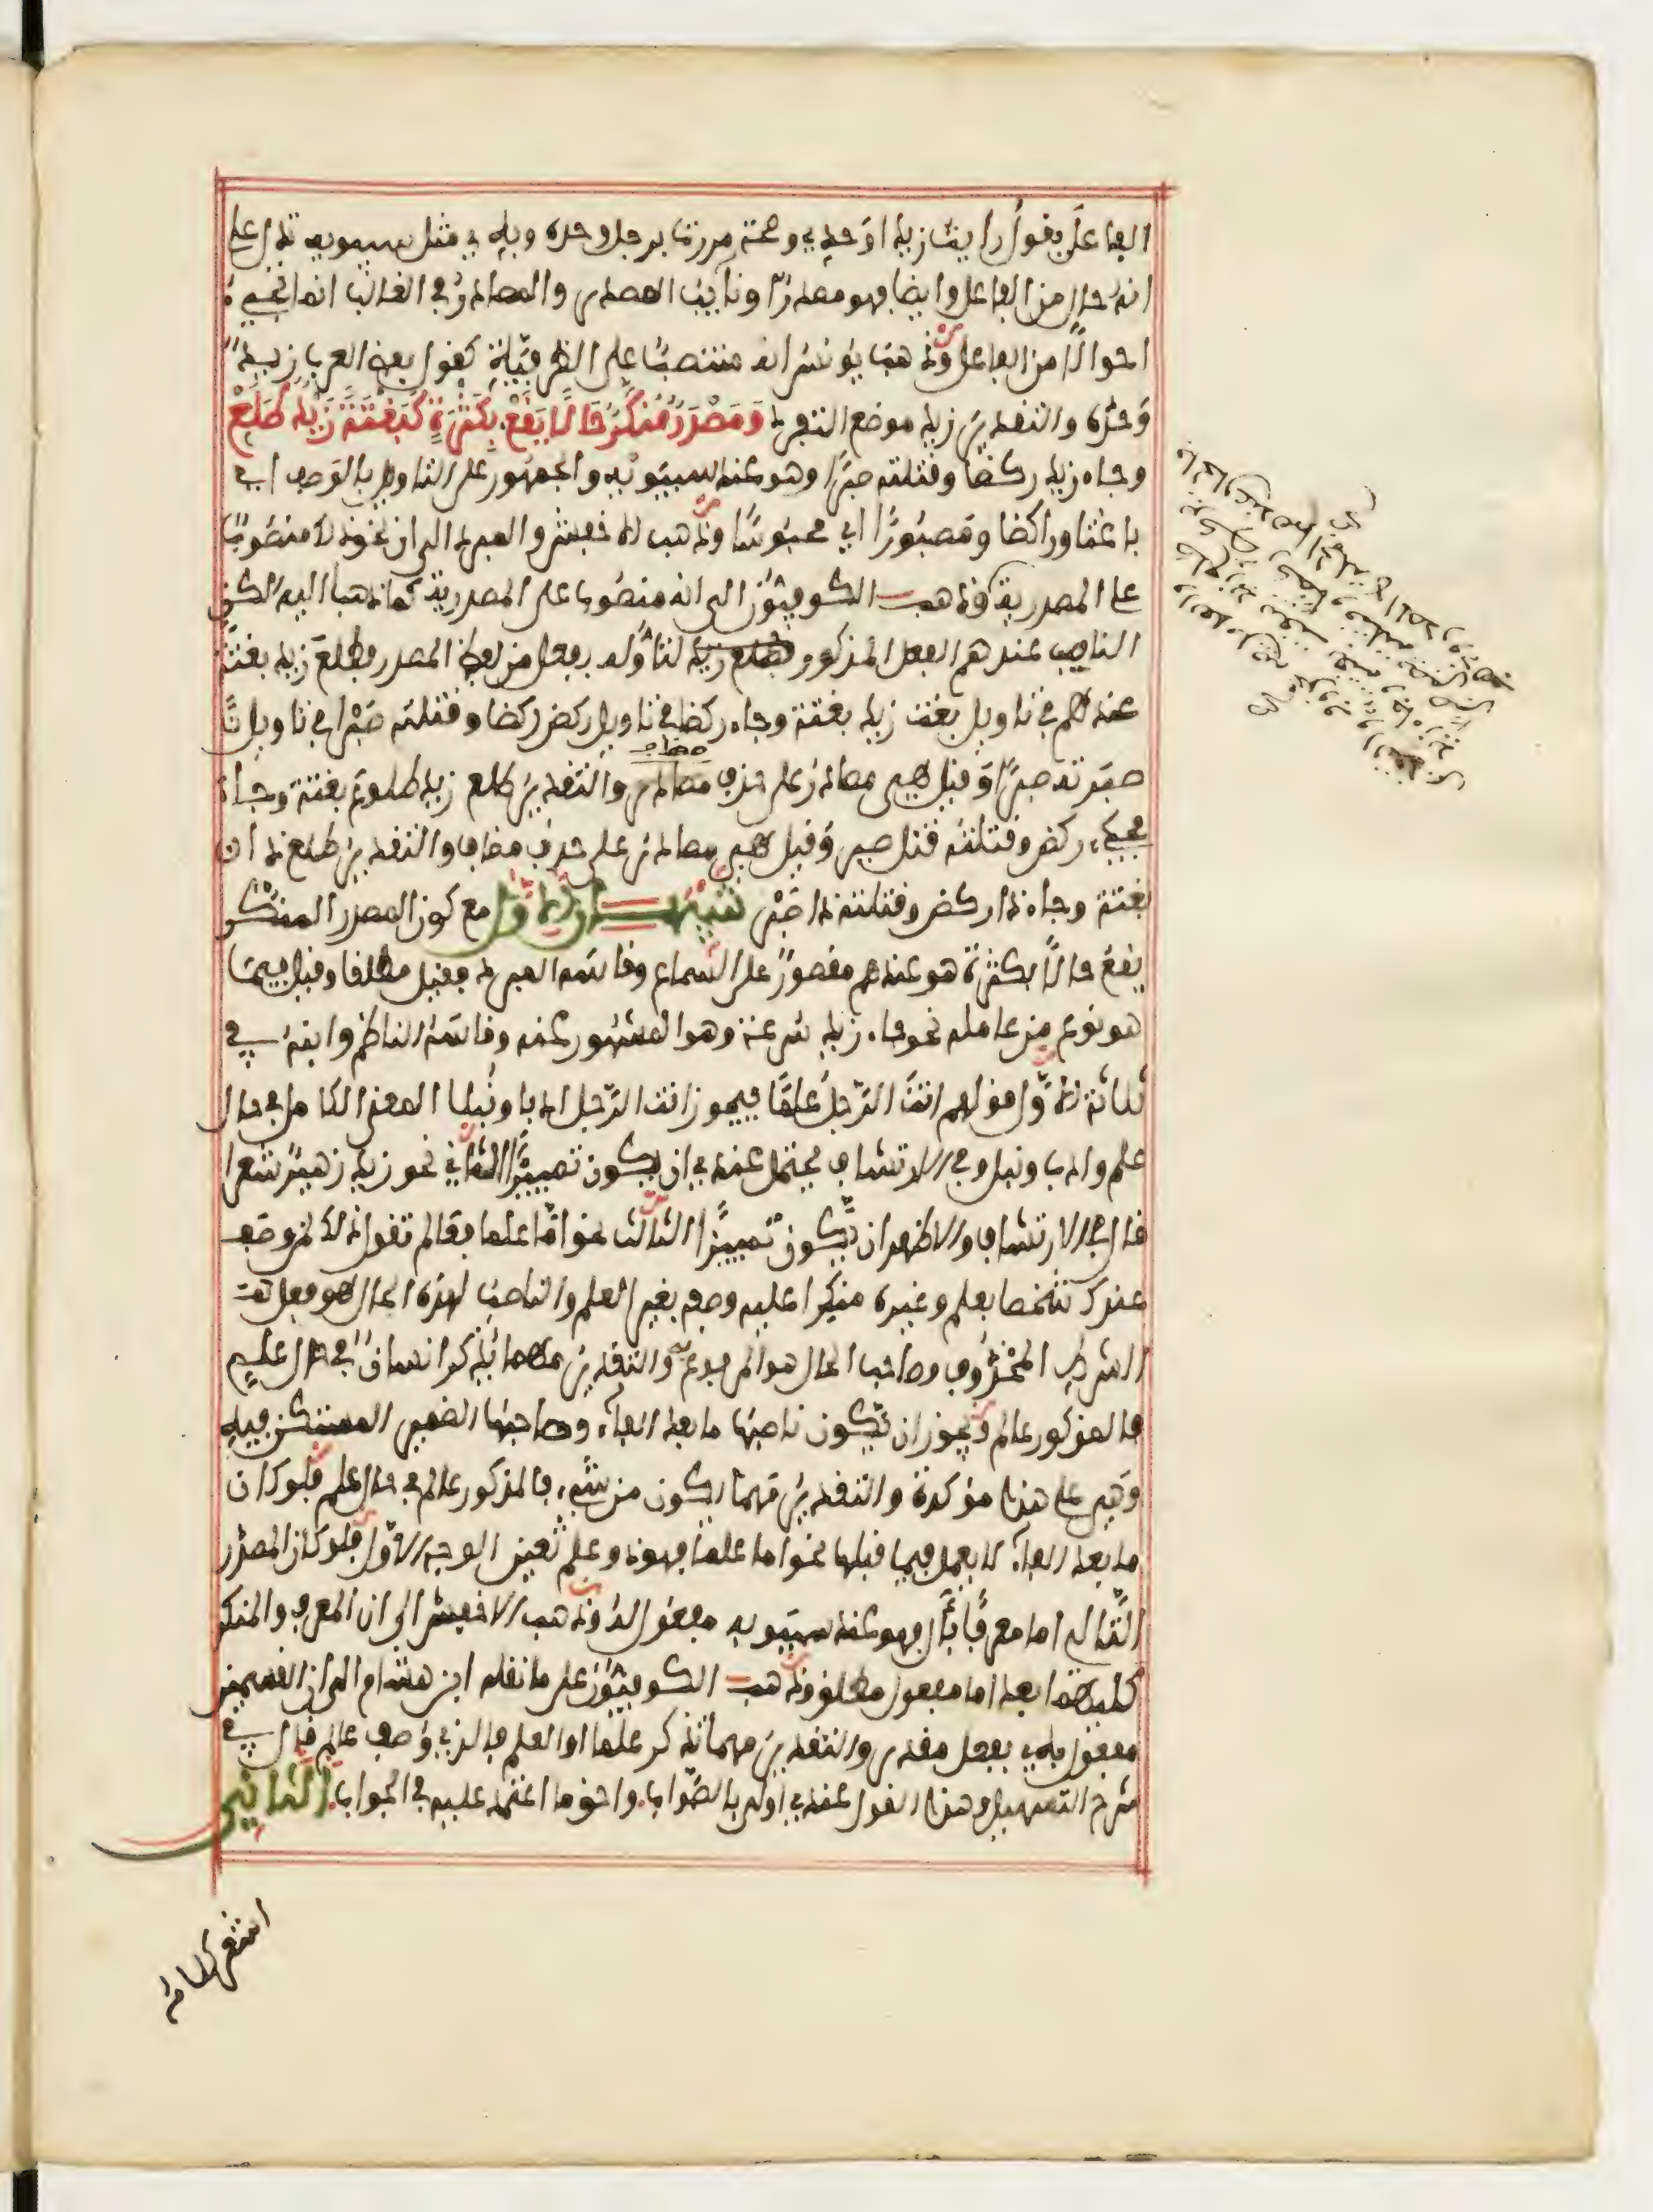 الفاعل يقول رأيت زيدا وحدي وصحة مررت برجل وحده وبه في مثل سيبويه تدل على
انه حال من الفاعل وايضا فهو مصدر او نائب المصدر والمصادر في الغالب انما تجيء
احوالا من الفاعل وذهب يونس انه منتصب على الظرفية كقول بعض العرب زيد
وحده والتقدير زيد موضع التفرد ومصدر منكر حالا يقع بكثرة كبغتة زيد طلع
وجاء زيد ركضا وقتلته صبرا وهو عند سيبويه والجمهور على التاويل بالوصف اي
باغتا وراكضا ومصبورا اي محبوسا وذهب الاخفش والمبرد الى ان نحو ذلك منصوب
على المصدرية وذهب الكوفيون الى انه منصوب على المصدرية كما ذهبا اليه لكن
الناصب عندهم الفعل المذكور لتاوله بفعل من لفظ المصدر فطلع زيد بغتة
عندهم في تاويل بغت زيد بغتة وجاء ركضا في تاويل ركض ركضا وقتلته صبرا في تاويل
صبرته صبرا وقيل هي مصادر على حذف مصادر والتقدير طلع زيد طلوع بغتة وجاء
مجيء ركض وقتلته قتل صبر وقيل هي مصادر على حذف مضاف والتقدير طلع ذا
بغتة وجاء ذا ركض وقتلته ذا صبر تنبيهان الاول مع كون المصدر المنكر
يقع حالا بكثرة هو عندهم مقصور على السماع وقاسه المبرد فقيل مطلقا وقيل فيما
هو نوع من عامله نحو جاء زيد سرعة وهو المشهور عنه وقاسه الناظم وابنه في
ثلاثة الاول قولهم انت الرجل علما فيجوز انت الرجل ادبا ونبلا المعنى الكامل في حال
علم وادب ونبل وفي الارتشاف يحتمل عندي ان يكون تمييزا الثاني نحو زيد زهير شعرا
قال في الارتشاف والاظهر ان يكون تمييزا الثالث نحو اما علما فعالم تقول ذلك لمن وصف
عندك شخصا بعلم وغيره منكرا عليه وصفه بغير العلم والناصب لهذه الحال هو فعل
الشرط المحذوف وصاحب الحال هو المرفوع والتقدير مهما يذكر انسان في حال علم
فالمذكور عالم ويجوز ان يكون ناصبها ما بعد الفاء وصاحبها الضمير المستكن فيه
وهي على هذا مؤكدة والتقدير مهما يكن من شيء فالمذكور عالم في حال علم فلو كان
ما بعد الفاء لا يعمل فيما قبلها نحو اما علما فهو ذو علم تعين الوجه الاول فلو كان المصدر
التالي اما معرفا بال فهو عند سيبويه مفعول له وذهب الاخفش الى ان المعرف والمنكر
كليهما بعد اما مفعول مطلق وذهب الكوفيون على ما نقله ابن هشام الى ان القسمين
مفعول به بفعل مقدر والتقدير مهما تذكر علما او العلم فالذي وصف عالم قال في
شرح التسهيل وهذا القول عندي اولى بالصواب واحق ما اعتمد عليه في الجواب الثاني